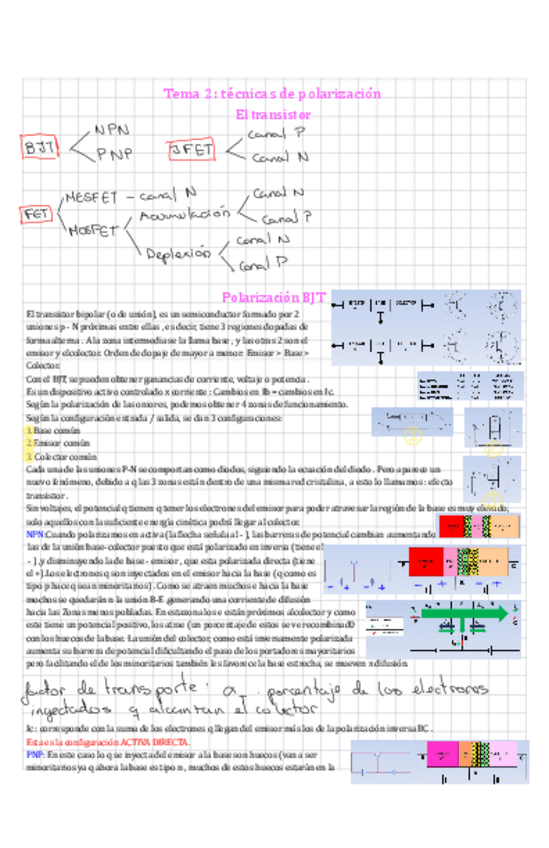 Tema 2: técnicas de polarización
El transistor
BJT
NPN
PNP
JFET
Canal P
Canal N
FET
MESFET - canal N
MOSFET
Acumulación
Canal N
Canal P
Deplexión
Canal N
Canal P
Polarización BJT
El transistor bipolar (o de unión), es un semiconductor formado por 2
uniones p - N próximas entre ellas, es decir, tiene 3 regiones dopadas de
forma alterna. A la zona intermedia se la llama base, y las otras 2 son el
emisor y el colector. Orden de dopaje de mayor a menor: Emisor > Base >
Colector.
Con el BJT, se pueden obtener ganancias de corriente, voltaje o potencia.
Es un dispositivo activo controlado x corriente: Cambios en Ib = cambios en Ic.
Según la polarización de las uniones, podemos obtener 4 zonas de funcionamiento.
Según la configuración entrada / salida, se dan 3 configuraciones:
1. Base común
2. Emisor común
3. Colector común
Cada una de las uniones P-N se comportan como diodos, siguiendo la ecuación del diodo. Pero aparece un
nuevo fenómeno, debido a q las 3 zonas están dentro de una misma red cristalina, a esto lo llamamos: efecto
transistor.
Sin voltajes, el potencial q tienen q tener los electrones del emisor para poder atravesar la región de la base es muy elevado,
solo aquellos con la suficiente energía cinética podrá llegar al colector.
NPN: Cuando polarizamos en activa (la flecha señala al - ), las barreras de potencial cambian aumentando
las de la unión base-colector puesto que está polarizado en inversa (tiene el
- ), y disminuyendo la de base - emisor, que esta polarizada directa (tiene
el +). Los electrones q son inyectados en el emisor hacia la base (q como es
tipo p hace q sean minoritarios). Como se atraen muchos e hacia la base
muchos se quedarán n la unión B-E generando una corriente de difusión
hacia las Zonas menos pobladas. En esta zona los e están próximos al colector y como
este tiene un potencial positivo, los atrae (un porcentaje de estos se ve recombinado
con los huecos de la base. La unión del colector, como está inversamente polarizada
aumenta su barrera de potencial dificultando el paso de los portadores mayoritarios
pero facilitando el de los minoritarios también les favorece la base estrecha, se mueven x difusión.
factor de transporte: α_T porcentaje de los electrones
inyectados q alcanzan el colector
Ic: corresponde con la suma de los electrones q llegan del emisor más los de la polarización inversa BC.
Esta es la configuración ACTIVA DIRECTA.
PNP: En este caso lo q se inyecta del emisor a la base son huecos (van a ser
minoritarios ya q ahora la base es tipo n, muchos de estos huecos estarán en la